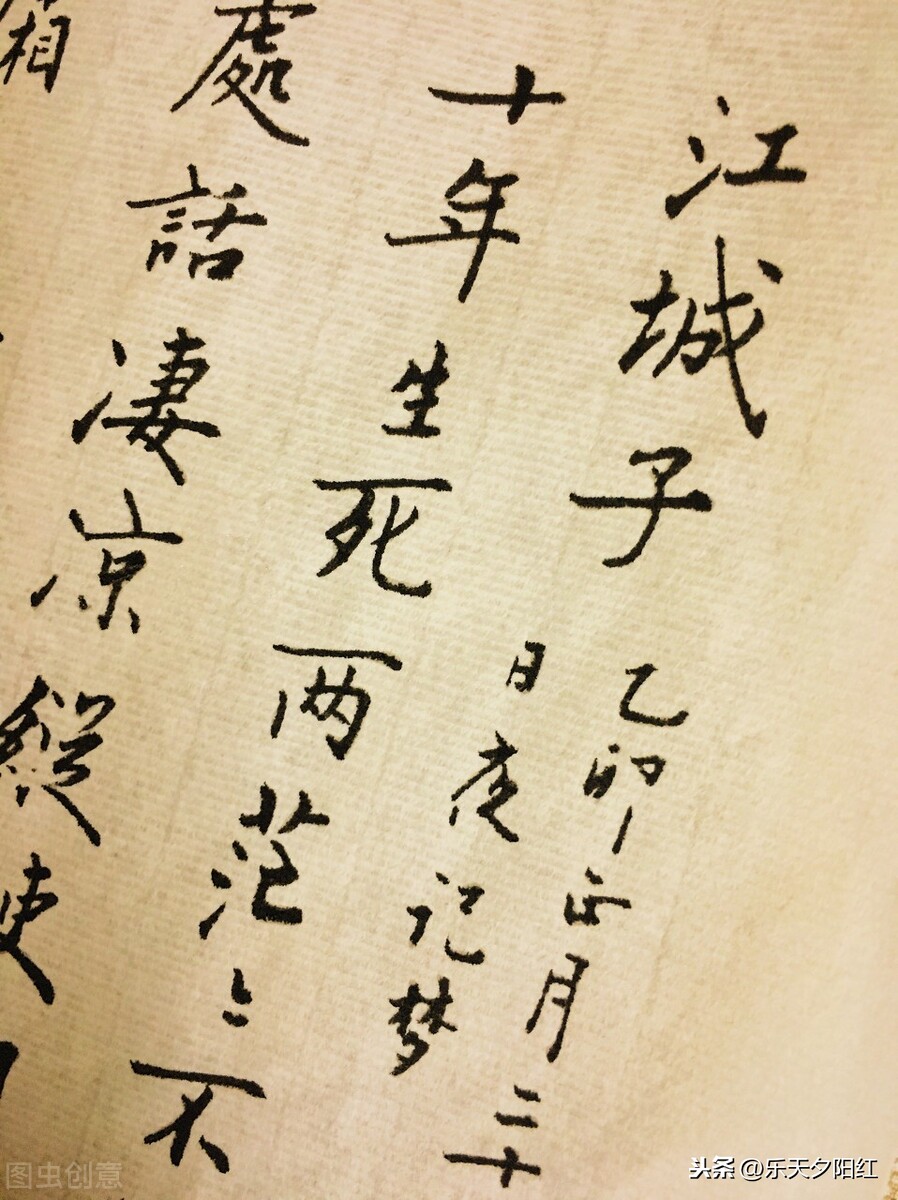 江城子 乙卯正月二十
日夜记梦
十年生死两茫〻不
處話凄凉縱使
图虫创意
头条 @乐天夕阳红